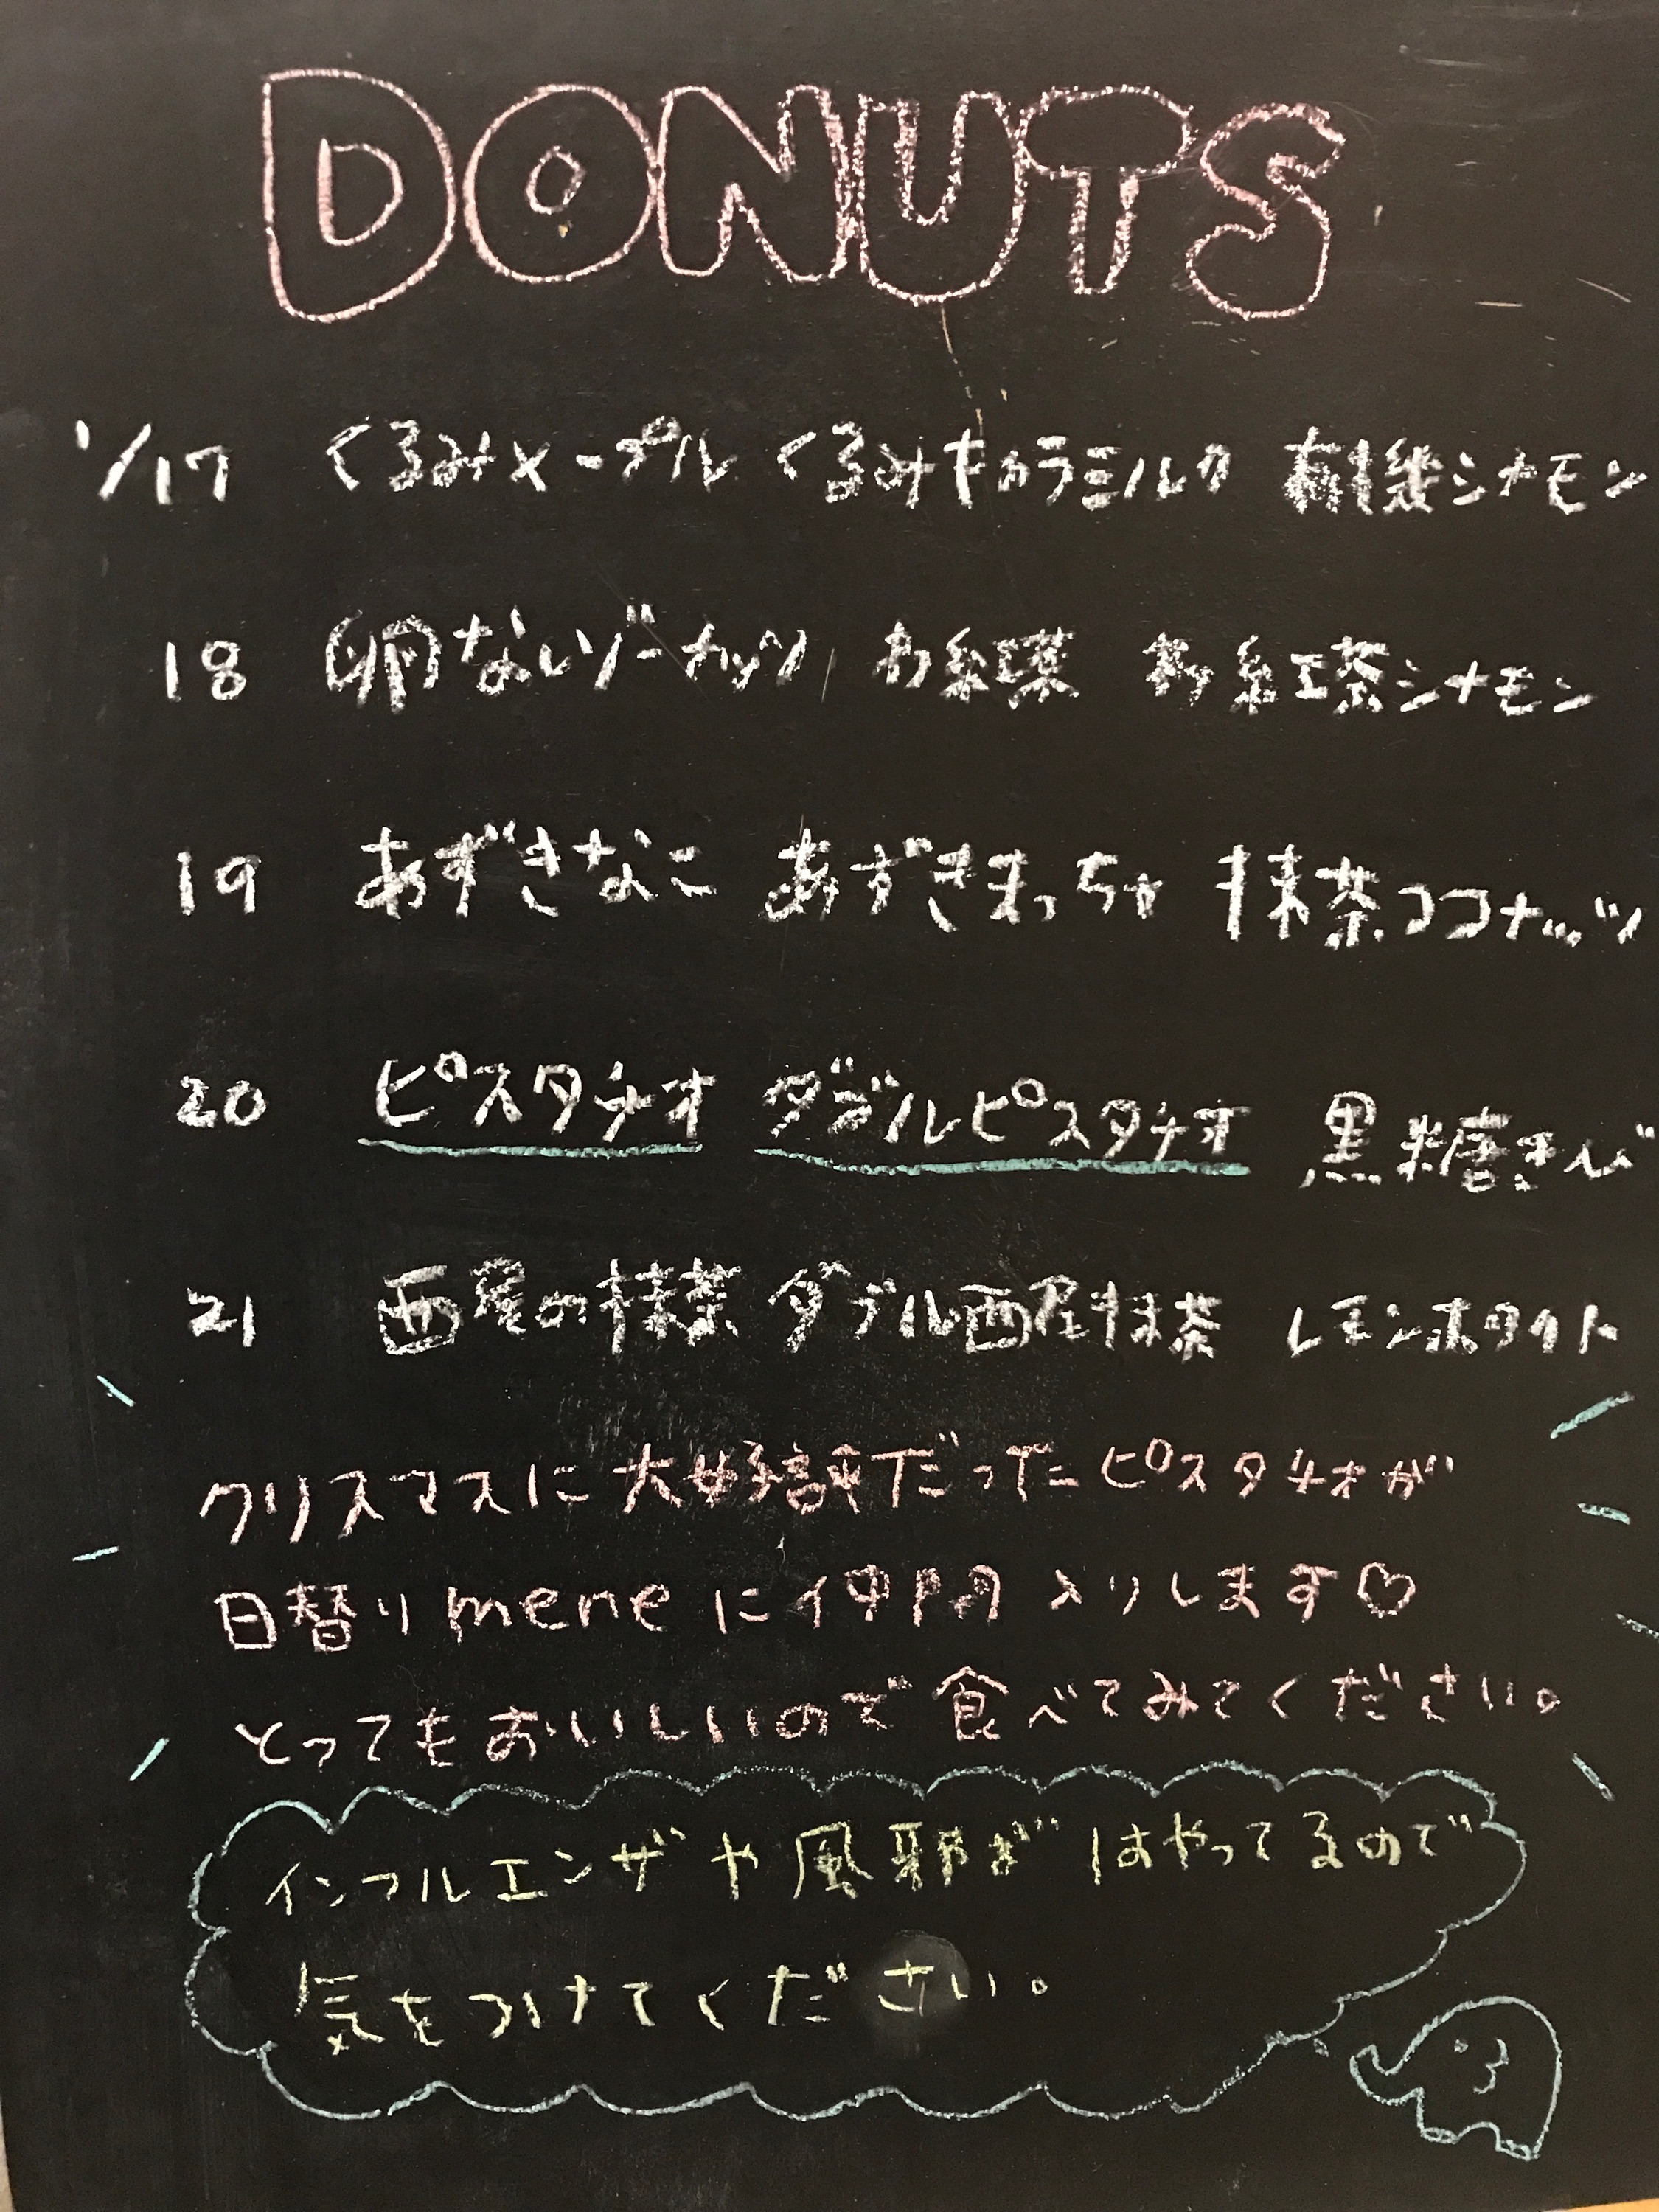 DONUTS
1/17 くるみメープル くるみキャラミルク 有機シナモン
18 卵ないドーナッツ お紅茶 お紅茶シナモン
19 あずきなこ あずきまっちゃ 抹茶ココナッツ
20 ピスタチオ ダブルピスタチオ 黒糖きび
21 西尾の抹茶 ダブル西尾抹茶 レモンホワイト
クリスマスに大好評だったピスタチオが
日替り meneに仲間入りします♡
とってもおいしいので食べてみてください。
インフルエンザや風邪がはやってるので
気をつけてください。